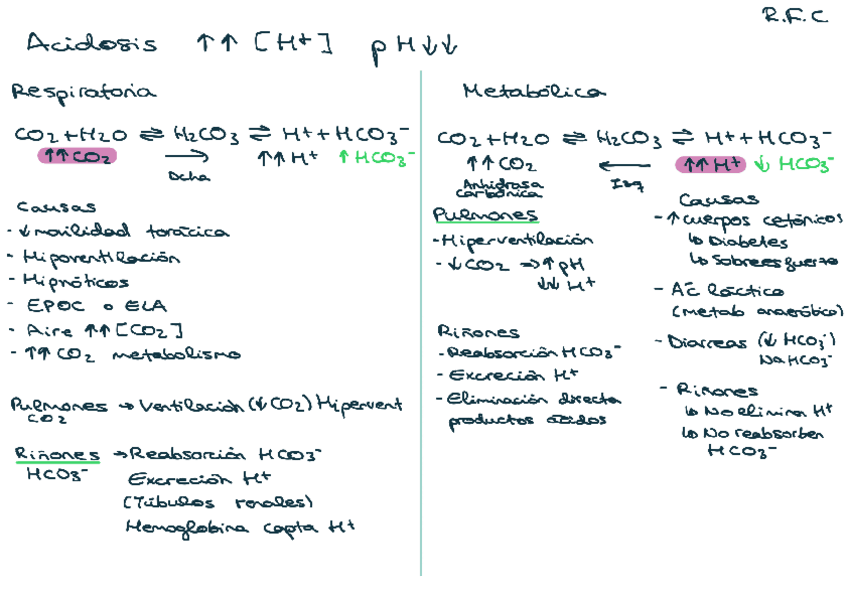 R.F.C
Acidosis ↑↑ [H+] pH↓↓
Respiratoria
CO2+H2O ⇌ H2CO3 ⇌ H+ + HCO3-
↑↑CO2 → ↑↑H+ ↑HCO3-
Dcha
Causas
- ↓ movilidad torácica
- Hipoventilación
- Hipnóticos
- EPOC o ELA
- Aire ↑↑ [CO2]
- ↑↑ CO2 metabolismo
Pulmones → Ventilación (↓CO2) Hipervent
CO2
Riñones → Reabsorción HCO3-
HCO3-
Excreción H+
(Túbulos renales)
Hemoglobina capta H+
Metabólica
CO2+H2O ⇌ H2CO3 ⇌ H+ + HCO3-
↑↑CO2 ← ↑↑H+ ↓ HCO3-
Anhidrasa Izq
carbónica
Pulmones
- Hiperventilación
- ↓CO2 → ↑pH
↓↓ H+
Riñones
- Reabsorción HCO3-
- Excreción H+
- Eliminación directa
productos ácidos
Causas
- ↑cuerpos cetónicos
↳ Diabetes
↳ Sobreesfuerzo
- Ac láctico
(metab anaeróbico)
- Diarreas (↓ HCO3-)
NaHCO3-
- Riñones
↳ No elimina H+
↳ No reabsorben
HCO3-